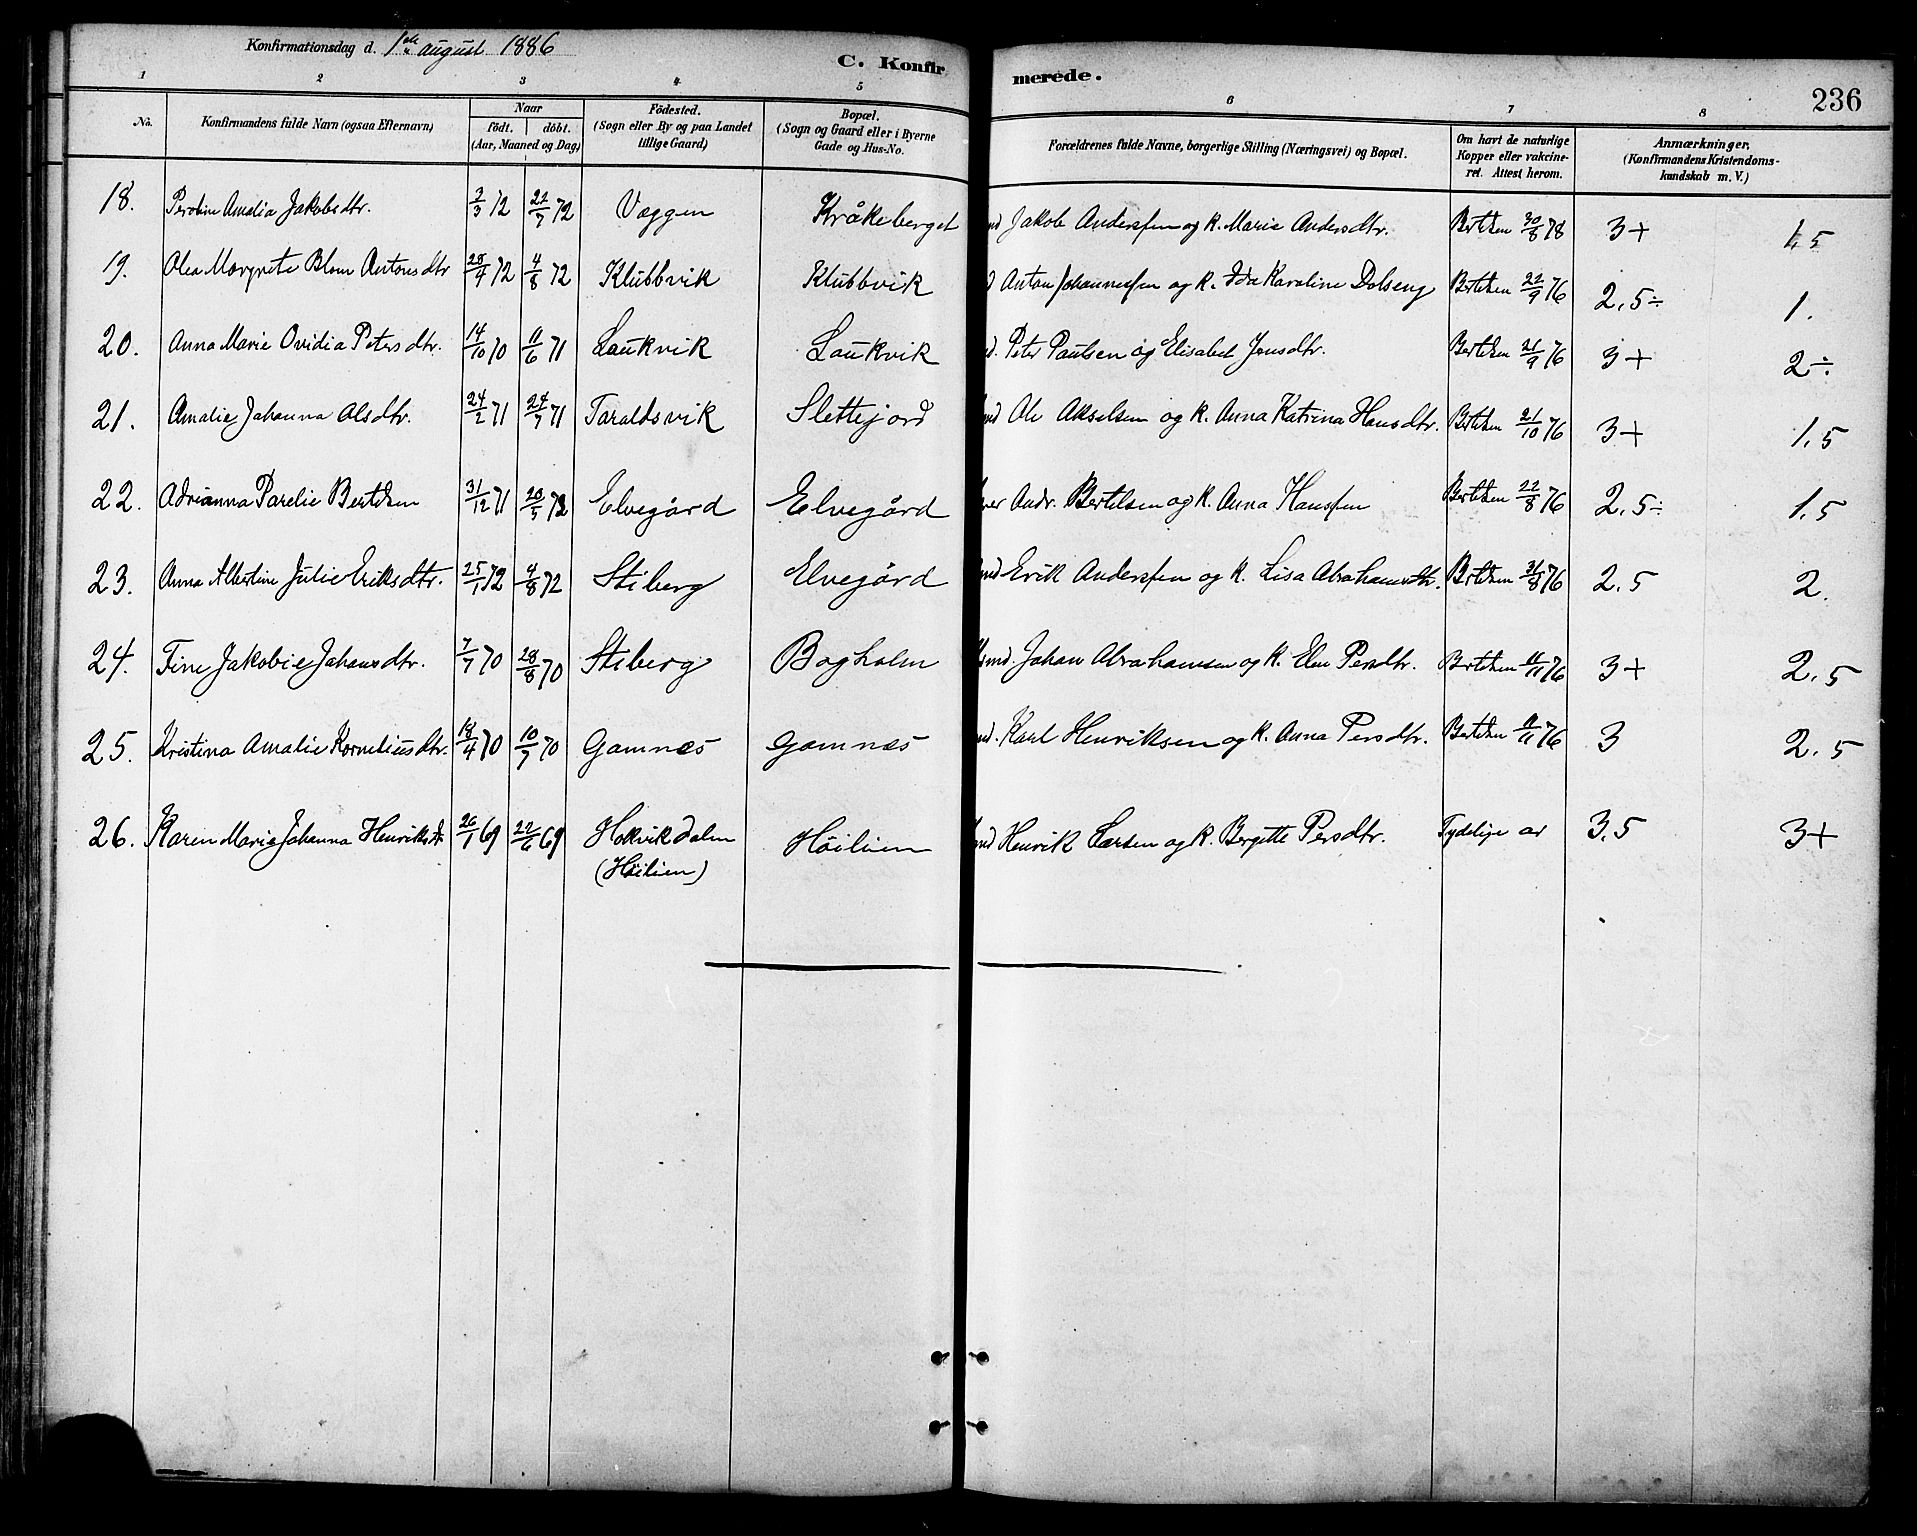 Konfirmationsdag d. 1ste august 1886
C. Konfirmerede.
236
1 2 3 4 5 6 7 8
No. Konfirmandens fulde Navn (ogsaa Efternavn) Naar födt. döbt. (Aar, Maaned og Dag) Födested. (Sogn eller By og paa Landet tillige Gaard) Bopæl. (Sogn og Gaard eller i Byerne Gade og Hus-No. Forældrenes fulde Navne, borgerlige Stilling (Næringsvei) og Bopæl. Om havt de naturlige Kopper eller vakcineret. Attest herom. Anmærkninger. (Konfirmandens Kristendomskundskab m. V.)
18. Amalia Jakobsdtr. 2/3 72 22/7 72 Væggen Kråkeberget Jakob Anderssen og k. Marie Andersdtr. Bertelsen 30/8 78 3+ 1,5
19. Olea Margrete Blom Antonsdtr 28/4 72 4/8 72 Klubbvik Klubbvik Anton Johannessen og k. Ida Karoline Dolseng Bertelsen 22/9 76 2.5÷ 1.
20. Anna Marie Ovidia Petersdtr. 14/10 70 11/6 71 Laukvik Laukvik Peter Paulsen og Elisabet Jensdtr. Bertelsen 21/9 76 3+ 2÷.
21. Amalie Johanna Olsdtr. 24/2 71 24/7 71 Taraldsvik Slettejord Ole Akselsen og k. Anna Katrina Hansdtr. Bertelsen 21/10 76 3+ 1,5
22. Adrianna Parelie Bertelsen 31/12 71 20/5 72 Elvegård Elvegård Andr. Bertelsen og k. Anna Hanssen Bertelsen 22/8 76 2,5÷ 1.5
23. Anna Albertine Julie Eriksdtr. 25/1 72 4/8 72 Stiberg Elvegård Erik Anderssen og k. Lisa Abrahamsdtr. Bertelsen 31/8 76 2.5 2.
24. Fine Jakobie Johansdtr. 7/7 70 28/8 70 Stiberg Bogholm Johan Abrahamsen og k. Elen Persdtr. Bertelsen 11/11 76 3+ 2.5
25. Kristina Amalie Korneliusdtr. 18/4 70 10/7 70 Gamnes Gamnes Karl Henriksen og k. Anna Persdtr. Bertelsen 11/11 76 3 2.5
26. Karen Marie Johanna Henriksdtr 26/1 69 22/6 69 Høilien Henrik Larsen og k. Bergitte Persdtr. Tydelige ar 3.5 3+
(Høilien)